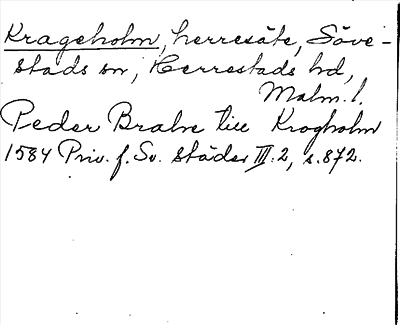 Krageholm, herresäte, Söve-
stads sn, Herrestads hd,
Malm. l.
Peder Brahe till Krogholm
1584 Priv. f. Sv. städer III. 2, s. 872.